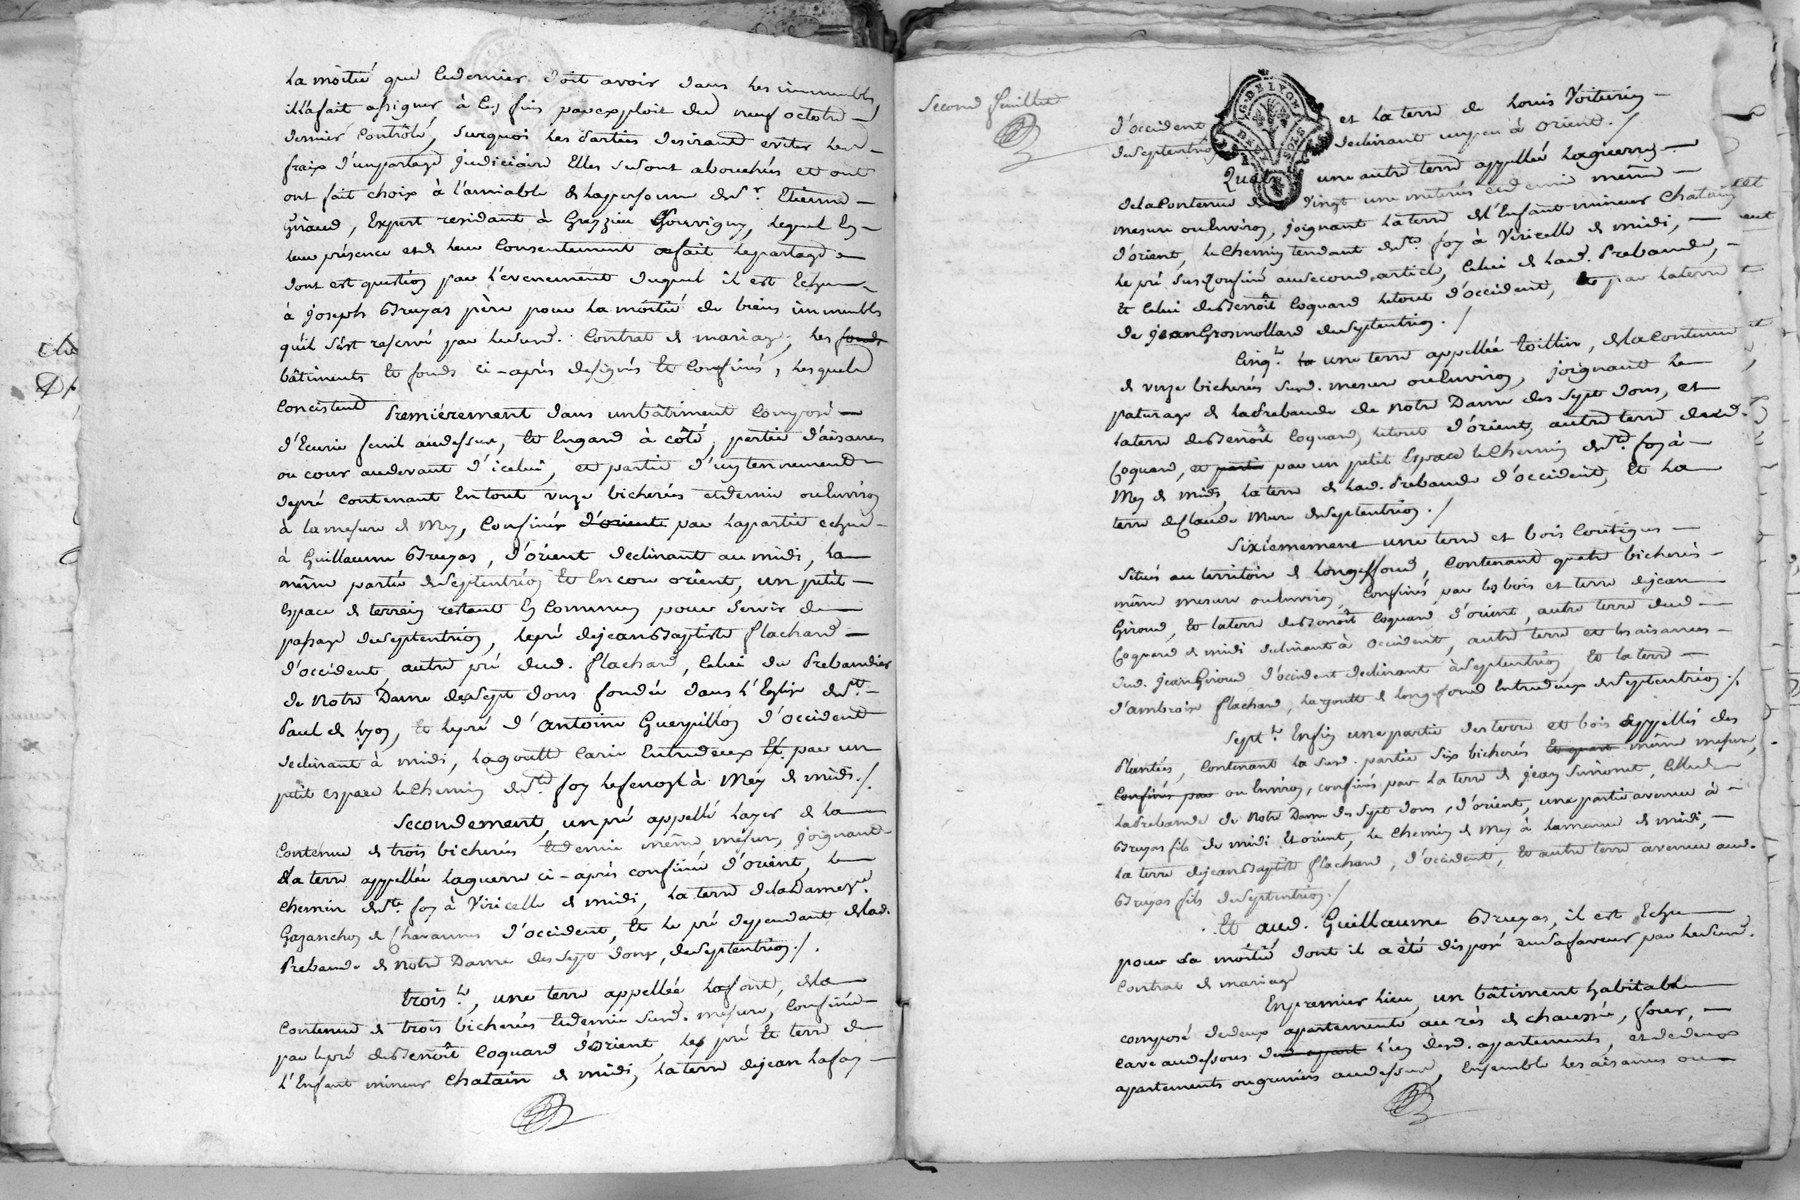 La moitié que ce dernier doit avoir dans les immeubles,
il l'a fait assigner à ces fins par exploit du neuf octobre
dernier Contrôlé, surquoi les parties desirant eviter les
fraix d'un partage judiciaire Elles se sont abouchées et ont
ont fait choix à l'amiable de la personne de Sr. Etienne
Giraud, Expert residant à Grezzieu Souvigny, lequel En
leur présence et de leur Consentement a fait le partage
dont est question par l'evenement duquel il est Echu
à joseph Bruyas père pour la moitié de biens immeubles
qu'il s'est reservé par le susd. Contrat de mariage, les fonds
bâtiments et fonds ci-après designés et Confinés, lesquels
Concistent Premiérement dans un bâtiment Composé
d'Ecurie fenil au dessus, et Engard à côté, partie d'aisances
ou cour au devant d'icelui, et partie d'un tennement
de pré Contenant En tout onze bicherées et demie ou Environ
à la mesure de Mey, Confinés d'orient par la partie echue
à Guillaume Bruyas, d'orient declinant au midi, la
même partie de Septentrion et Encore orient, un petit
Espace de terrein restant En Commun pour servir de
passage de Septentrion, le pré de jean Baptiste flachard
d'occident, autre pré dud. flachard, Celui du Prebandier
de Notre Dame de Sept dons fondée dans l'Eglise de St.
Paul de Lyon, et le pré d'Antoine Guerpillon d'occident
declinant à midi, la goutte Entredeux Et par un
petit espace le Chemin de Ste. foy à Mey de midi./.
Secondement, un pré appellé Layer de la
Contenue de trois bicherées et demie même mesure, joignant
la terre appellée Laguerre ci-après confinée d'orient, le
Chemin de Ste. foy à Viricelle de midi, la terre de la Dame
Gazanchon de Chavannes d'occident, Et le pré dependant de lad.
Prebande de Notre Dame des Sept dons, de Septentrion./.
trois.t, une terre appellée Lafont, de la
Contenue de trois bicherées Et demie susd. mesure, Confinée
par le pré de Benoît Coquard d'Orient, les pré Et terre de
l'Enfant mineur Chatain de midi, la terre de jean Lafay
Second feuillet
G. DE LYON
d'occident et la terre de Louis Voiturin
de Septentrion declinant un peu à Orient./
une autre terre appellée Laguerre
de la Contenue de vingt une metérées et demie même
mesure ou Environ, joignant la terre de l'Enfant mineur Chatain
d'orient, le Chemin tendant de Ste. foy à Viricelle de midi,
le pré sus Confiné au Second article, Celui de lad. Prebande,
Et Celui de Benoît Coquard le tout d'occident, Et par la terre
de jean Grosmollard de Septentrion./
Cinq.t la une terre appellée toillin, de la Contenue
de onze bicherées susd. mesure ou Environ, joignant le
paturage de la Prebande de Notre Dame des Sept Dons, et
la terre de Benoît Coquard, le tout d'orient, autre terre dud.
Coquard, et partie par un petit Espace le Chemin de Ste. foy à
Mey de midi, la terre de lad. Prebande d'occident, Et la
terre de Claude Mure de Septentrion./
Sixiemement une terre et bois Contigus
situés au territoire de Longefond, Contenant quatre bicherées
même mesure ou Environ, Confinés par les bois et terre de jean
Giroud, Et la terre de Benoît Coquard d'orient, autre terre dud
Coquard de midi declinant à Occident, autre terre et les aisances
dud. jean Giroud d'occident declinant à Septentrion, Et la terre
d'ambroise flachard, la goutte de Longefond Entredeux de Septentrion./
Sept.t Enfin une partie des terre et bois appellés des
Plantées, Contenant la susd. partie six bicherées et quart même mesure,
Confinés par ou Environ, confinés par la terre de jean Simonet, Celle de
la Prebande de Notre Dame des Sept Dons, d'orient, une partie avenue à
Bruyas fils de midi Et orient, le Chemin de Mey à de midi,
la terre de jean Baptiste flachard, d'occident, Et autre terre avenue aud.
Bruyas fils de Septentrion./
Et aud. Guillaume Bruyas, il est Echu
pour la moitié dont il a été disposé en sa faveur par le susd.
Contrat de mariage
En premier lieu, un bâtiment habitable
composé de deux appartements au rès de chaussée, four,
cave au dessous de appart l'un desd. appartements, et de deux
appartements ou greniers au dessus, Ensemble les aisances ou